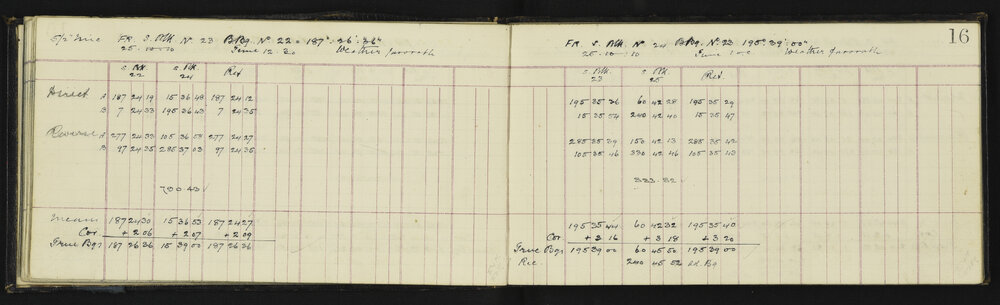 FR. S. Pkt. No. 23 BRg. No. 22 = 187° 26' 36"
25.10.10 Time 12.30 Weather
S. Pkt. 22 S. Pkt. 24 Ref
Direct A 187 24 19 15 36 48 187 24 12
B 7 24 33 195 36 43 7 24 35
Reverse A 277 24 33 105 36 53 277 24 27
B 97 24 35 285 37 03 97 24 35
700.43
Means 187 24 30 15 36 53 187 24 27
Cor + 2 06 + 2 07 + 2 09
True Bgs 187 26 36 15 39 00 187 26 36
16
FR S. Pkt. No. 24 BRg. No. 23 195° 39' 00"
25.10.10 Time Weather
S. Pkt. 23 S. Pkt. 25 Ref.
195 35 36 60 42 28 195 35 29
15 35 54 240 42 40 15 35 47
285 35 39 150 42 13 285 35 42
105 35 46 330 42 46 105 35 43
383.52
195 35 44 60 42 32 195 35 40
Cor + 3 16 + 3 18 + 3 20
True Bgs 195 39 00 60 45 50 195 39 00
Rec. 240 45 52 Bg